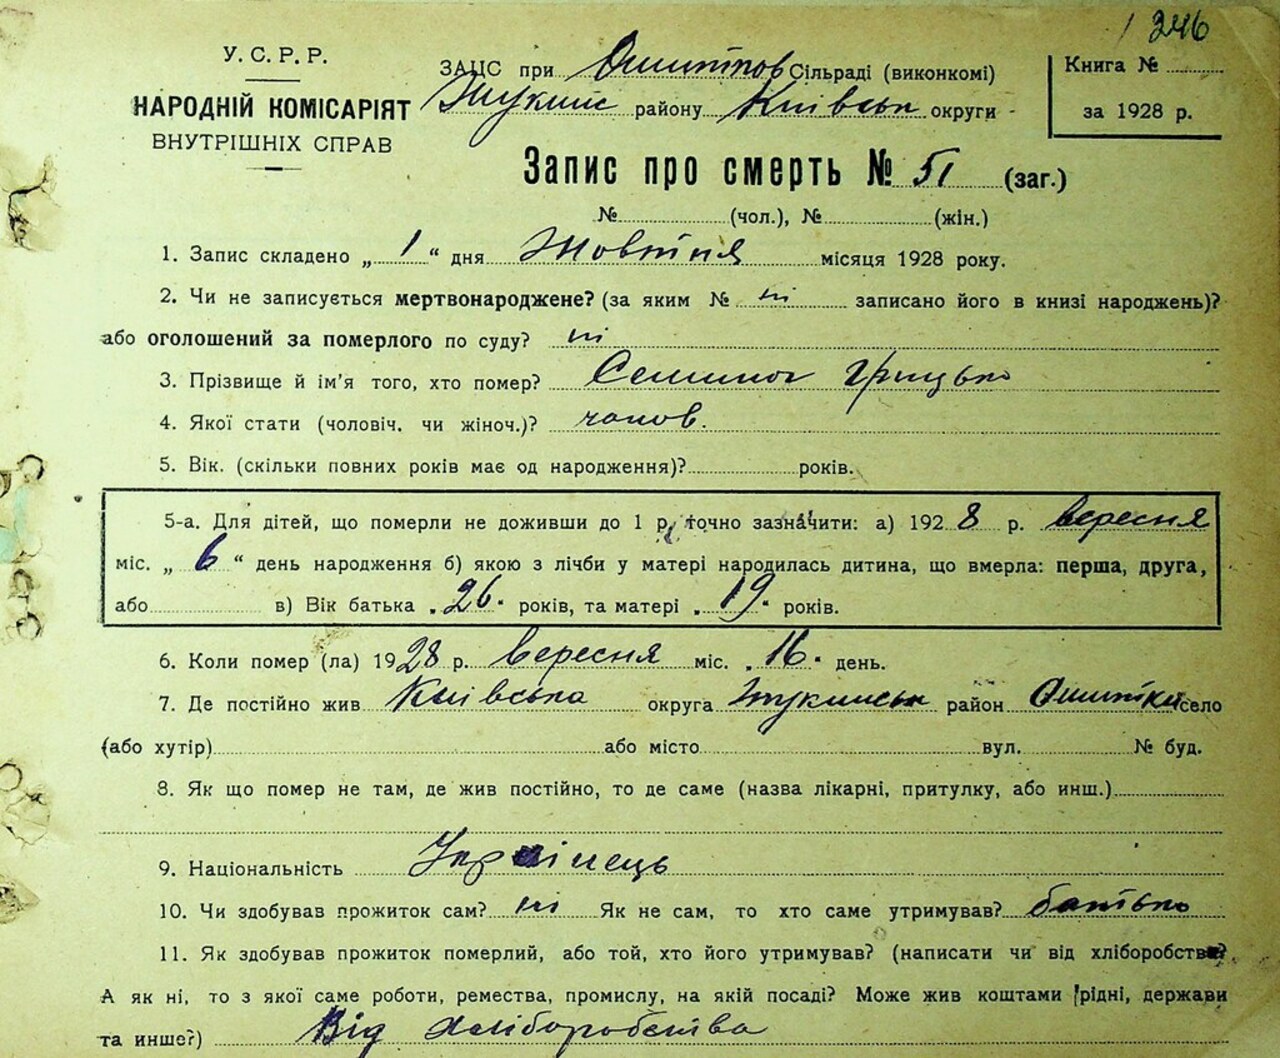 1 246
У. С. Р. Р.
НАРОДНІЙ КОМІСАРІЯТ
ВНУТРІШНІХ СПРАВ
ЗАЦС при Ошитков Сільраді (виконкомі)
Жукинс району Київськ округи
Книга №
за 1928 р.
Запис про смерть № 51 (заг.)
№ (чол.), № (жін.)
1. Запис складено „ 1 “ дня Жовтня місяця 1928 року.
2. Чи не записується мертвонароджене? (за яким № ні записано його в книзі народжень)?
або оголошений за померлого по суду? ні
3. Прізвище й ім'я того, хто помер? Семиног Грицько
4. Якої стати (чоловіч. чи жіноч.)? чолов.
5. Вік. (скільки повних років має од народження)? років.
5-а. Для дітей, що померли не доживши до 1 р, точно зазначити: а) 1928 р. вересня
міс. „ 6 “ день народження б) якою з лічби у матері народилась дитина, що вмерла: перша, друга,
або в) Вік батька „26“ років, та матері „19“ років.
6. Коли помер (ла) 1928 р. вересня міс. „16“ день.
7. Де постійно жив Київська округа Жукинськ район Ошитки село
(або хутір) або місто вул. № буд.
8. Як що помер не там, де жив постійно, то де саме (назва лікарні, притулку, або инш.)
9. Національність Українець
10. Чи здобував прожиток сам? ні Як не сам, то хто саме утримував? батько
11. Як здобував прожиток померлий, або той, хто його утримував? (написати чи від хліборобства?
А як ні, то з якої саме роботи, ремества, промислу, на якій посаді? Може жив коштами рідні, держави
та инше?) Від хліборобства